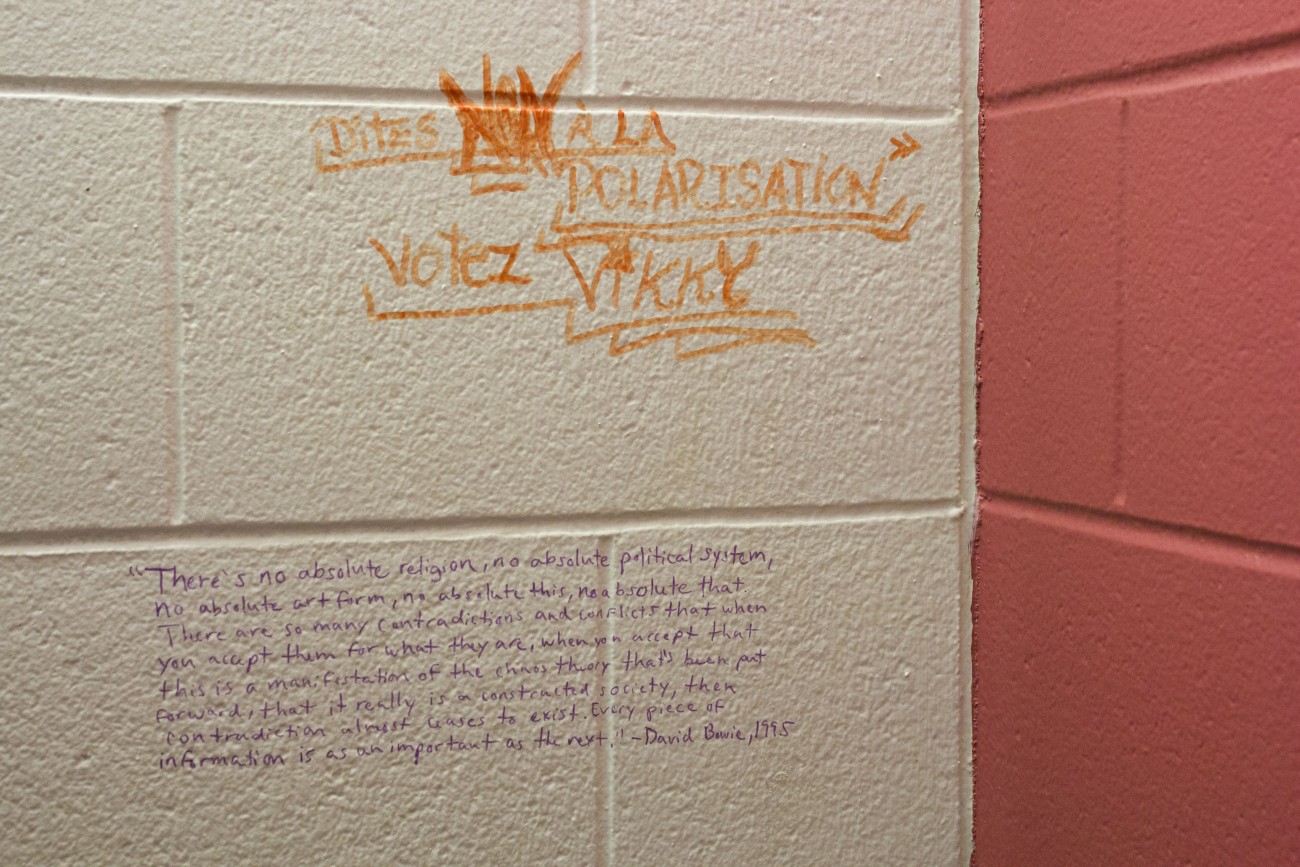 DITES NON À LA
POLARISATION »
VOTEZ VIKKY
"There's no absolute religion, no absolute political system,
no absolute art form, no absolute this, no absolute that.
There are so many contradictions and conflicts that when
you accept them for what they are, when you accept that
this is a manifestation of the chaos theory that's been put
forward, that it really is a constructed society, then
contradiction almost ceases to exist. Every piece of
information is as an important as the next." - David Bowie, 1995